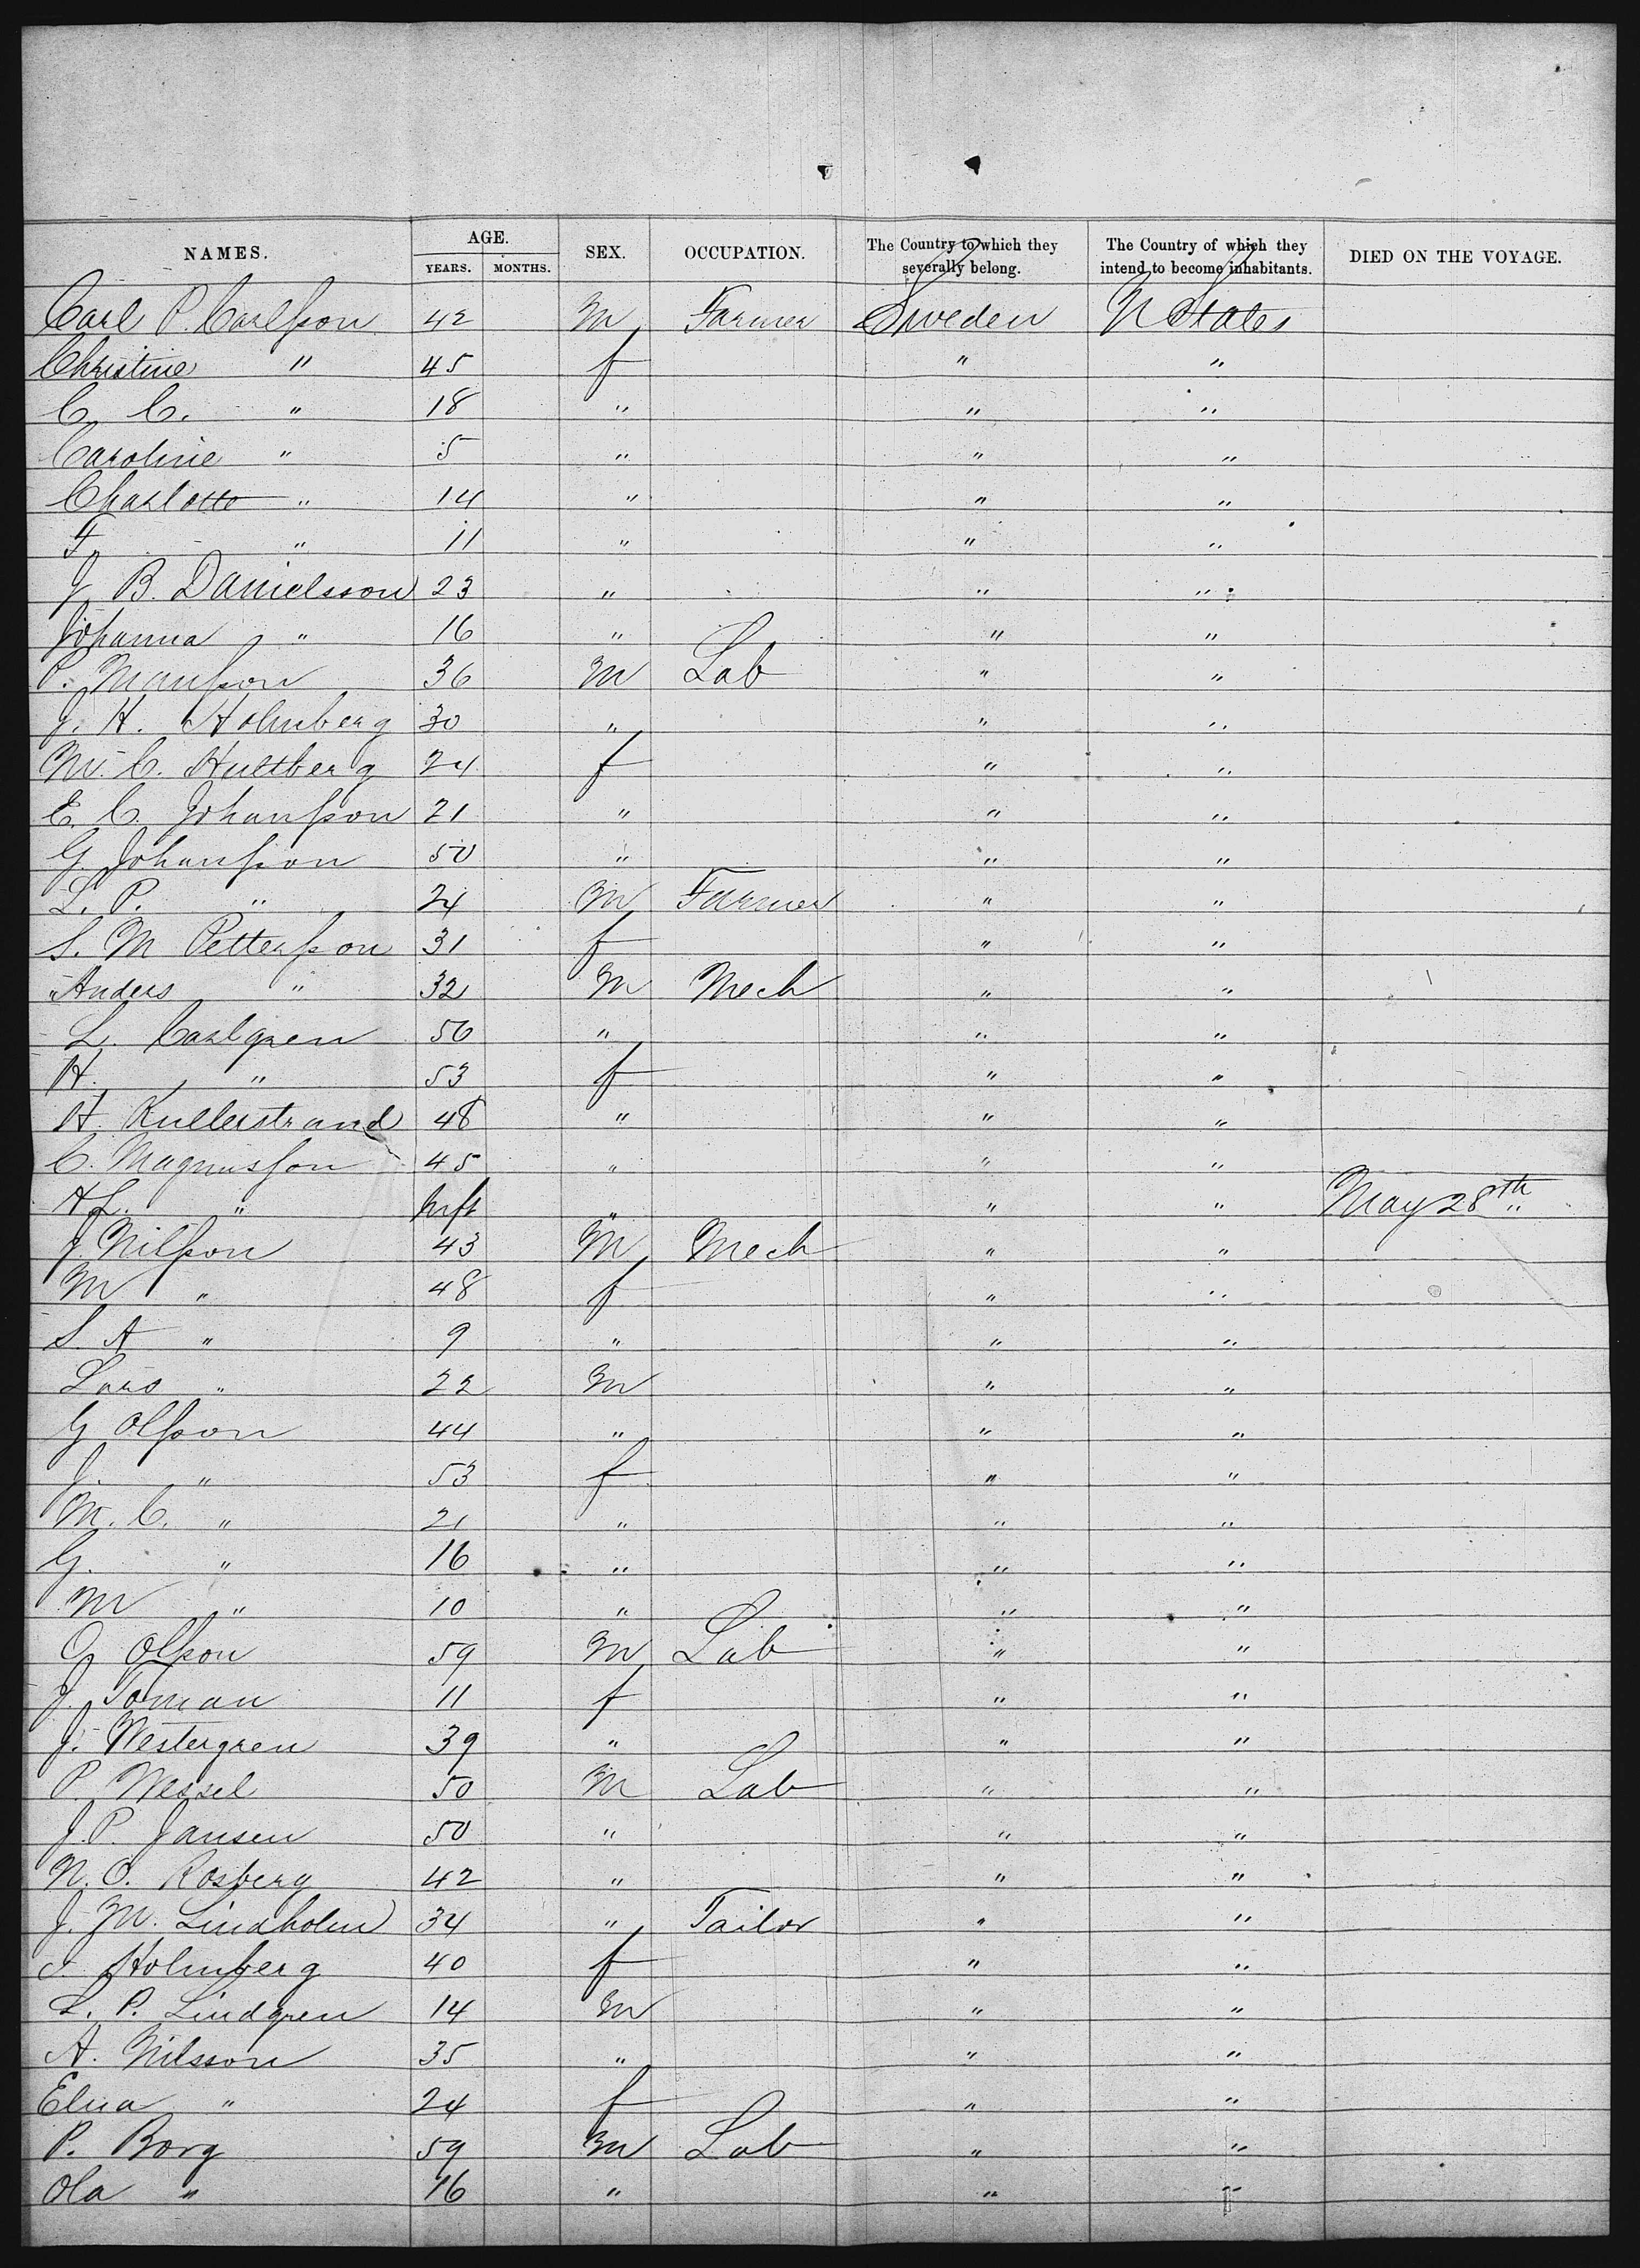 NAMES. AGE. SEX. OCCUPATION. The Country to which they severally belong. The Country of which they intend to become inhabitants. DIED ON THE VOYAGE.
YEARS. MONTHS.
Carl P. Carlsson 42 M Farmer Sweden U States
Christine " 45 f " "
C. C. " 18 " " "
Caroline " 5 " " "
Charlotte " 14 " " "
F " 11 " " "
J B. Danielsson 23 " " "
Johanna " 16 " " "
P. Mansson 36 M Lab " "
J. H. Holmberg 30 " " "
M. C. Hultberg 24 f " "
E. C. Johansson 21 " " "
G. Johansson 50 " " "
L. P. " 24 M Farmer " "
S. M Pettersson 31 f " "
Anders " 32 M Mech " "
L. Carlgren 50 " " "
H. " 53 f " "
H. Kullerstrand 48 " " "
C. Magnusson 45 " " "
A L. " Inft " " " May 28th
J. Nilsson 43 M Mech " "
M " 48 f " "
S. A " 9 " " "
Lars " 22 M " "
G Olsson 44 " " "
J. " 53 f " "
M. C. " 21 " " "
G. " 16 " " "
M " 10 " " "
O Olsson 59 M Lab " "
J. Toman 11 f " "
J. Westergren 39 " " "
P. Wessel 50 M Lab " "
J. P. Jansen 50 " " "
N. O. Rosberg 42 " " "
J. M. Lindholm 34 " Tailor " "
J. Holmberg 40 f " "
L. P. Lindgren 14 M " "
A. Nilsson 35 " " "
Elna " 24 f " "
P. Borg 59 M Lab " "
Ola " 16 " " "